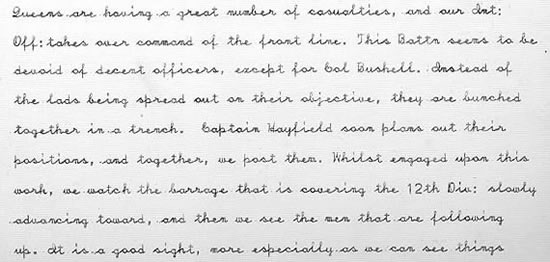 Queens are having a great number of casualties, and our Int:
Off: takes over command of the front line. This Battn seems to be
devoid of decent officers, except for Col Bushell. Instead of
the lads being spread out on their objective, they are bunched
together in a trench. Captain Hayfield soon plans out their
positions, and together, we post them. Whilst engaged upon this
work, we watch the barrage that is covering the 12th Div: slowly
advancing toward, and then we see the men that are following
up. It is a good sight, more especially as we can see things